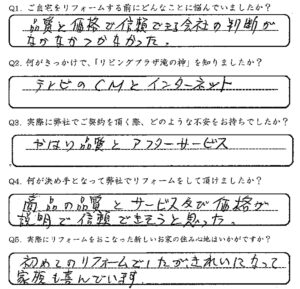 Q1. ご自宅をリフォームする前にどんなことに悩んでいましたか?
品質と価格で信頼できる会社の判断が
なかなかつかなかった。
Q2. 何がきっかけで、「リビングプラザ滝の神」を知りましたか?
テレビのCMとインターネット
Q3. 実際に弊社でご契約を頂く際、どのような不安をお持ちでしたか?
やはり品質とアフターサービス
Q4. 何が決め手となって弊社でリフォームをして頂けましたか?
商品の品質とサービス及び価格が
説明で信頼できそうと思った。
Q5. 実際にリフォームをおこなった新しいお家の住み心地はいかがですか?
初めてのリフォームでしたがきれいになって
家族も喜んでいます